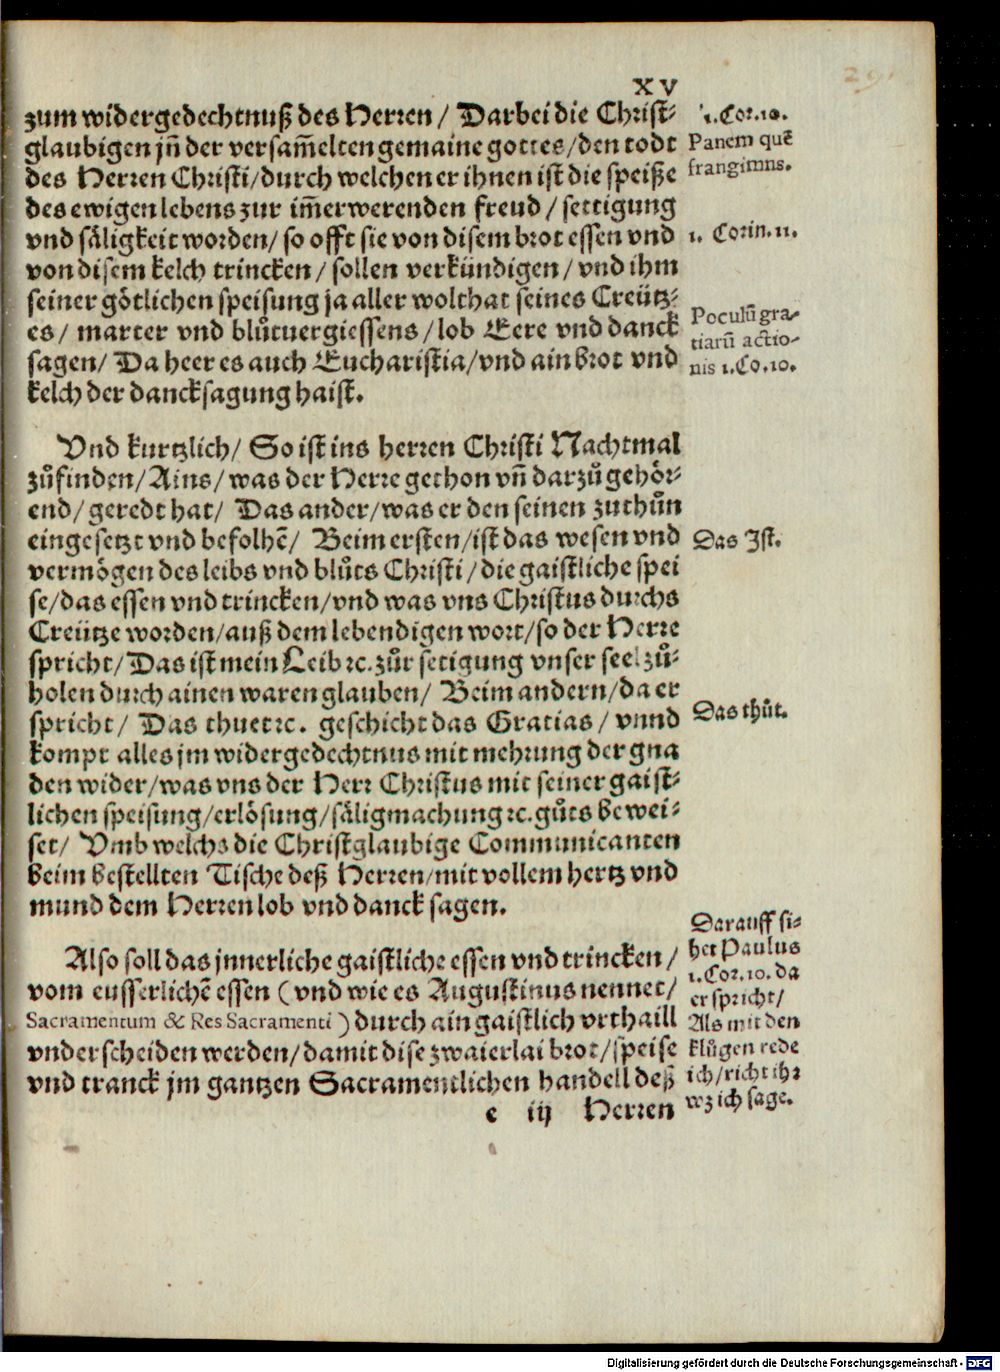 XV
zum widergedechtnuß des Herren / Darbei die Christ⸗
glaubigen jñ der versam̃elten gemaine gottes / den todt
des Herren Christi / durch welchen er ihnen ist die speiße
des ewigen lebens zur im̃erwerenden freud / settigung
vnd säligkeit worden / so offt sie von disem brot essen vnd
von disem kelch trincken / sollen verkündigen / vnd ihm
seiner götlichen speisung ja aller wolthat seines Creütz⸗
es / marter vnd blůtuergiessens / lob Eere vnd danck
sagen / Da heer es auch Eucharistia / vnd ain brot vnd
kelch der dancksagung haist.
1. Cor. 10.
Panem quẽ
frangimus.
1. Corin. 11.
Poculũ gra-
tiarũ actio-
nis 1. Co. 10.
Vnd kurtzlich / So ist ins herren Christi Nachtmal
zůfinden / Ains / was der Herre gethon vñ darzů gehör⸗
end / geredt hat / Das ander / was er den seinen zuthůn
eingesetzt vnd befolhẽ / Beim ersten / ist das wesen vnd
vermögen des leibs vnd blůts Christi / die gaistliche spei
se / das essen vnd trincken / vnd was vns Christus durchs
Creütze worden / auß dem lebendigen wort / so der Herre
spricht / Das ist mein Leib ꝛc. zůr setigung vnser seel zů⸗
holen durch ainen waren glauben / Beim andern / da er
spricht / Das thuet ꝛc. geschicht das Gratias / vnnd
kompt alles jm widergedechtnus mit mehrung der gna
den wider / was vns der Herr Christus mit seiner gaist⸗
lichen speisung / erlösung / säligmachung ꝛc. gůts bewei⸗
set / Vmb welchs die Christglaubige Communicanten
beim bestellten Tische deß Herren / mit vollem hertz vnd
mund dem Herren lob vnd danck sagen.
Das Ist.
Das thůt.
Also soll das jnnerliche gaistliche essen vnd trincken /
vom eusserlichẽ essen ( vnd wie es Augustinus nennet /
Sacramentum & Res Sacramenti ) durch ain gaistlich vrthaill
vnderscheiden werden / damit dise zwaierlai brot / speise
vnd tranck jm gantzen Sacramentlichen handell deß
Darauff si⸗
het Paulus
1. Cor. 10. da
er spricht /
Als mit den
klůgen rede
ich / richt ihr
wz ich sage.
e iij Herren
Digitalisierung gefördert durch die Deutsche Forschungsgemeinschaft - DFG